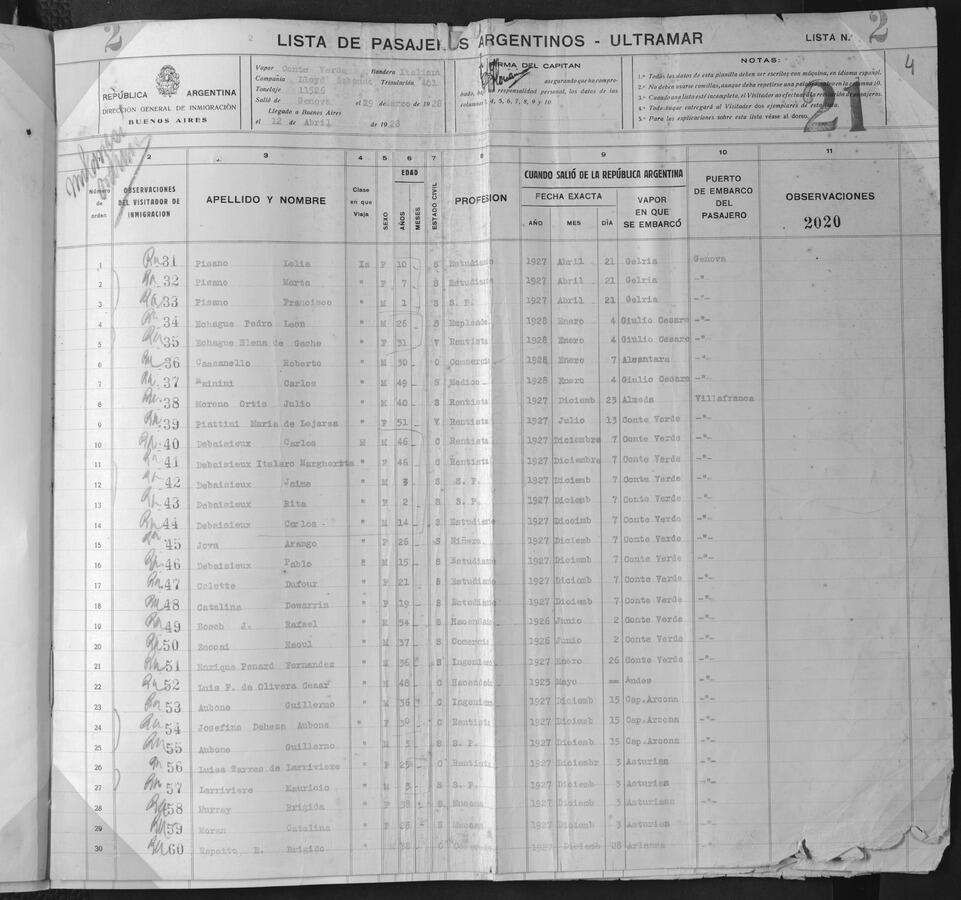 2
LISTA DE PASAJEROS ARGENTINOS - ULTRAMAR
LISTA N.° 2
4
REPÚBLICA ARGENTINA
DIRECCIÓN GENERAL DE INMIGRACIÓN
BUENOS AIRES
Vapor Conte Verde Bandera Italiana
Compañía Lloyd Sabaudo Tripulación 401
Tonelaje 11526
Salió de Genova el 29 de Marzo de 1928
Llegado a Buenos Aires
el 12 de Abril de 1928
FIRMA DEL CAPITAN
asegurando que ha compro-
bado, bajo su responsabilidad personal, los datos de las
columnas 4, 5, 6, 7, 8, 9 y 10
NOTAS:
1.ª Todos los datos de esta planilla deben ser escritos con máquina, en idioma español.
2.ª No deben usarse comillas, aunque deba repetirse una palabra, columna 10.
3.ª Cuando una lista esté incompleta, el Visitador no efectuará la revisación de pasajeros.
4.ª Todo buque entregará al Visitador dos ejemplares de esta lista.
5.ª Para las explicaciones sobre esta lista véase al dorso.
21
2 3 4 5 6 7 8 9 10 11
Número de orden
OBSERVACIONES DEL VISITADOR DE INMIGRACION
APELLIDO Y NOMBRE
Clase en que Viaja
SEXO
EDAD
AÑOS
MESES
ESTADO CIVIL
PROFESION
CUANDO SALIÓ DE LA REPÚBLICA ARGENTINA
FECHA EXACTA
AÑO MES DÍA
VAPOR EN QUE SE EMBARCÓ
PUERTO DE EMBARCO DEL PASAJERO
OBSERVACIONES
2020
1 31 Pisano Lelia Ia F 10 S Estudiante 1927 Abril 21 Gelria Genova
2 32 Pisano Marta " F 7 S Estudiante 1927 Abril 21 Gelria -"-
3 33 Pisano Francisco " M 1 S S. P. 1927 Abril 21 Gelria -"-
4 34 Echague Pedro Leon " M 26 S Empleado 1928 Enero 4 Giulio Cesare -"-
5 35 Echague Elena de Gache " F 31 V Rentista 1928 Enero 4 Giulio Cesare -"-
6 36 Cassanello Roberto " M 30 C Comercio 1928 Enero 7 Alcantara -"-
7 37 Mainini Carlos " M 49 S Medico 1928 Enero 4 Giulio Cesare -"-
8 38 Moreno Ortis Julio " M 40 S Rentista 1927 Diciemb 23 Almeda Villafranca
9 39 Piattini Maria de Lejarza " F 51 V Rentista 1927 Julio 13 Conte Verde -"-
10 40 Debaisieux Carlos M 46 C Rentista 1927 Diciembre 7 Conte Verde -"-
11 41 Debaisieux Italaro Margherita " F 46 C Rentista 1927 Diciembre 7 Conte Verde -"-
12 42 Debaisieux Jaime " M 3 S S. P. 1927 Diciemb 7 Conte Verde -"-
13 43 Debaisieux Rita " F 2 S S. P. 1927 Diciemb 7 Conte Verde -"-
14 44 Debaisieux Carlos " M 14 S Estudiante 1927 Diciemb 7 Conte Verde -"-
15 45 Jova Arango " F 26 S Niñera 1927 Diciemb 7 Conte Verde -"-
16 46 Debaisieux Pablo " M 15 S Estudiante 1927 Diciemb 7 Conte Verde -"-
17 47 Colette Dufour " F 21 S Estudiante 1927 Diciemb 7 Conte Verde -"-
18 48 Catalina Dewarrin " F 19 S Estudiante 1927 Diciemb 7 Conte Verde -"-
19 49 Bosch J. Rafael " M 54 C Hacendado 1926 Junio 2 Conte Verde -"-
20 50 Zocchi Raoul " M 37 C Comercio 1926 Junio 2 Conte Verde -"-
21 51 Enrique Penard Fernandez " M 36 S Ingeniero 1927 Enero 26 Conte Verde -"-
22 52 Luis F. de Olivera Cesar " M 48 C Hacendado 1925 Mayo == Andes -"-
23 53 Aubone Guillermo " M 36 C Ingeniero 1927 Diciemb 15 Cap.Arcona -"-
24 54 Josefina Deheza Aubone " F 30 C Rentista 1927 Diciemb 15 Cap.Arcona -"-
25 55 Aubone Guillermo " M 5 S S. P. 1927 Diciemb 15 Cap.Arcona -"-
26 56 Luisa Tarras de Larriviere " F 25 C Rentista 1927 Diciembr 3 Asturias -"-
27 57 Larriviere Mauricio " M 3 S S. P. 1927 Diciemb 3 Asturias -"-
28 58 Murray Brigida " F 38 S Mucama 1927 Diciemb 3 Asturias -"-
29 59 Moran Catalina " F 28 S Mucama 1927 Diciemb 3 Asturias -"-
30 60 Repetto E. Brigido " M 38 Diciemb 28 -"-